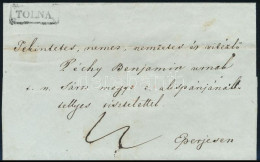 TOLNA
Tekintetes, nemes, nemzetes és vitézlő
Péchy Benjamin urnak
s. n. Sáros megye 2. alispánjának
tisztelettel
Eperjesen